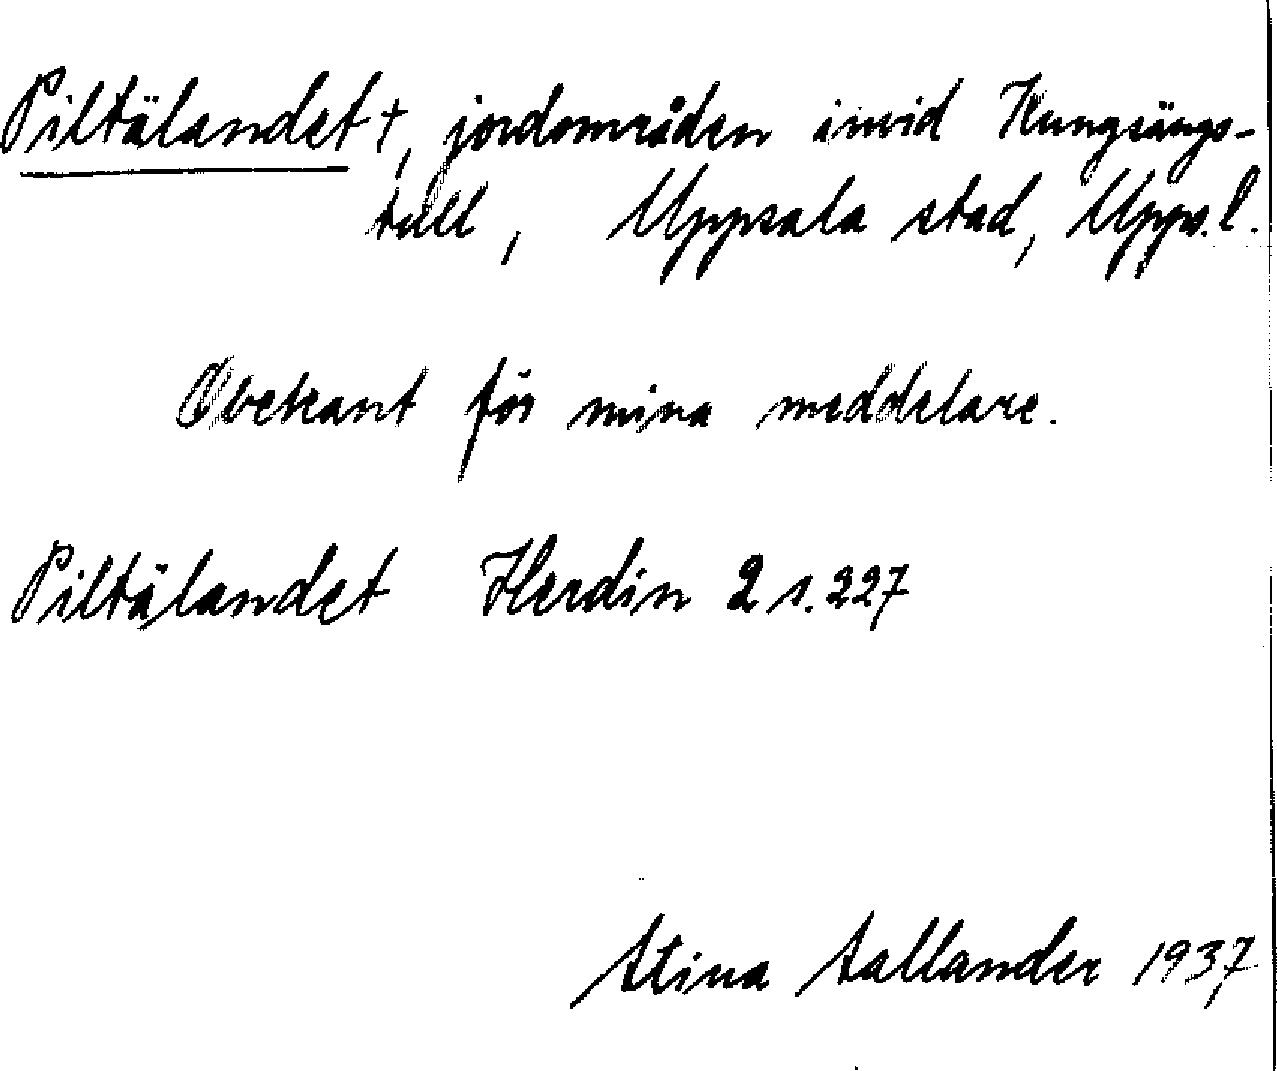 Piltälandet †, jordområden invid Kungsängs-
tull, Uppsala stad, Upps.l.
Obekant för mina meddelare.
Piltälandet Herdin 2 s.227
Stina Sallander 1937